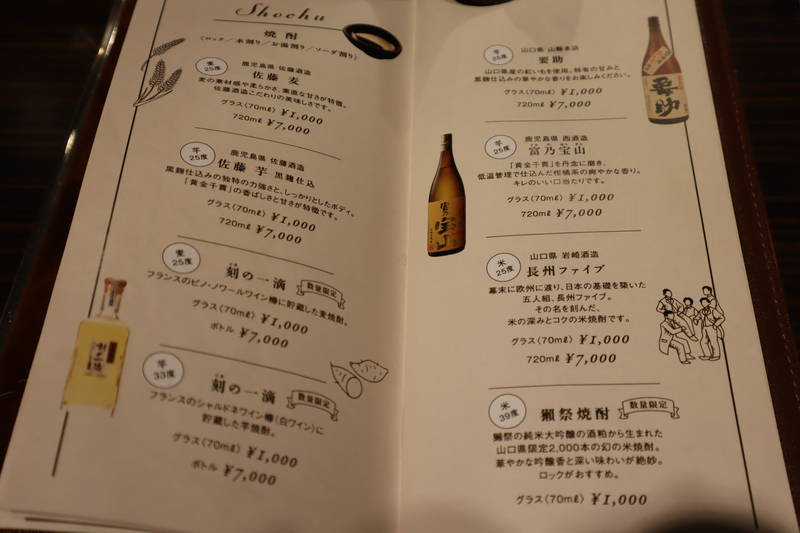 Shochu
焼酎
(ロック／水割り／お湯割り／ソーダ割り)
麦
25度
鹿児島県 佐藤酒造
佐藤 麦
麦の素材感や柔らかさ、素直な甘さが特徴。
佐藤酒造こだわりの美味しさです。
グラス(70mℓ) ¥1,000
720mℓ ¥7,000
芋
25度
鹿児島県 佐藤酒造
佐藤 芋 黒麹仕込
黒麹仕込みの独特の力強さと、しっかりとしたボディ。
「黄金千貫」の香ばしさと甘さが特徴です。
グラス(70mℓ) ¥1,000
720mℓ ¥7,000
麦
25度
刻の一滴 数量限定
フランスのピノ・ノワールワイン樽に貯蔵した麦焼酎。
グラス(70mℓ) ¥1,000
ボトル ¥7,000
芋
33度
刻の一滴 数量限定
フランスのシャルドネワイン樽(白ワイン)に
貯蔵した芋焼酎。
グラス(70mℓ) ¥1,000
ボトル ¥7,000
芋
25度
山口県 山縣本店
要助
山口県産の紅いもを使用。特有の甘みと
黒麹仕込みの華やかな香りをお楽しみください。
グラス(70mℓ) ¥1,000
720mℓ ¥7,000
要助
芋
25度
鹿児島県 西酒造
富乃宝山
「黄金千貫」を丹念に磨き、
低温管理で仕込んだ柑橘系の爽やかな香り。
キレのいい口当たりです。
グラス(70mℓ) ¥1,000
720mℓ ¥7,000
米
25度
山口県 岩崎酒造
長州ファイブ
幕末に欧州に渡り、日本の基礎を築いた
五人組、長州ファイブ。
その名を刻んだ、
米の深みとコクの米焼酎です。
グラス(70mℓ) ¥1,000
720mℓ ¥7,000
米
39度
獺祭焼酎 数量限定
獺祭の純米大吟醸の酒粕から生まれた
山口県限定2,000本の幻の米焼酎。
華やかな吟醸香と深い味わいが絶妙。
ロックがおすすめ。
グラス(70mℓ) ¥1,000